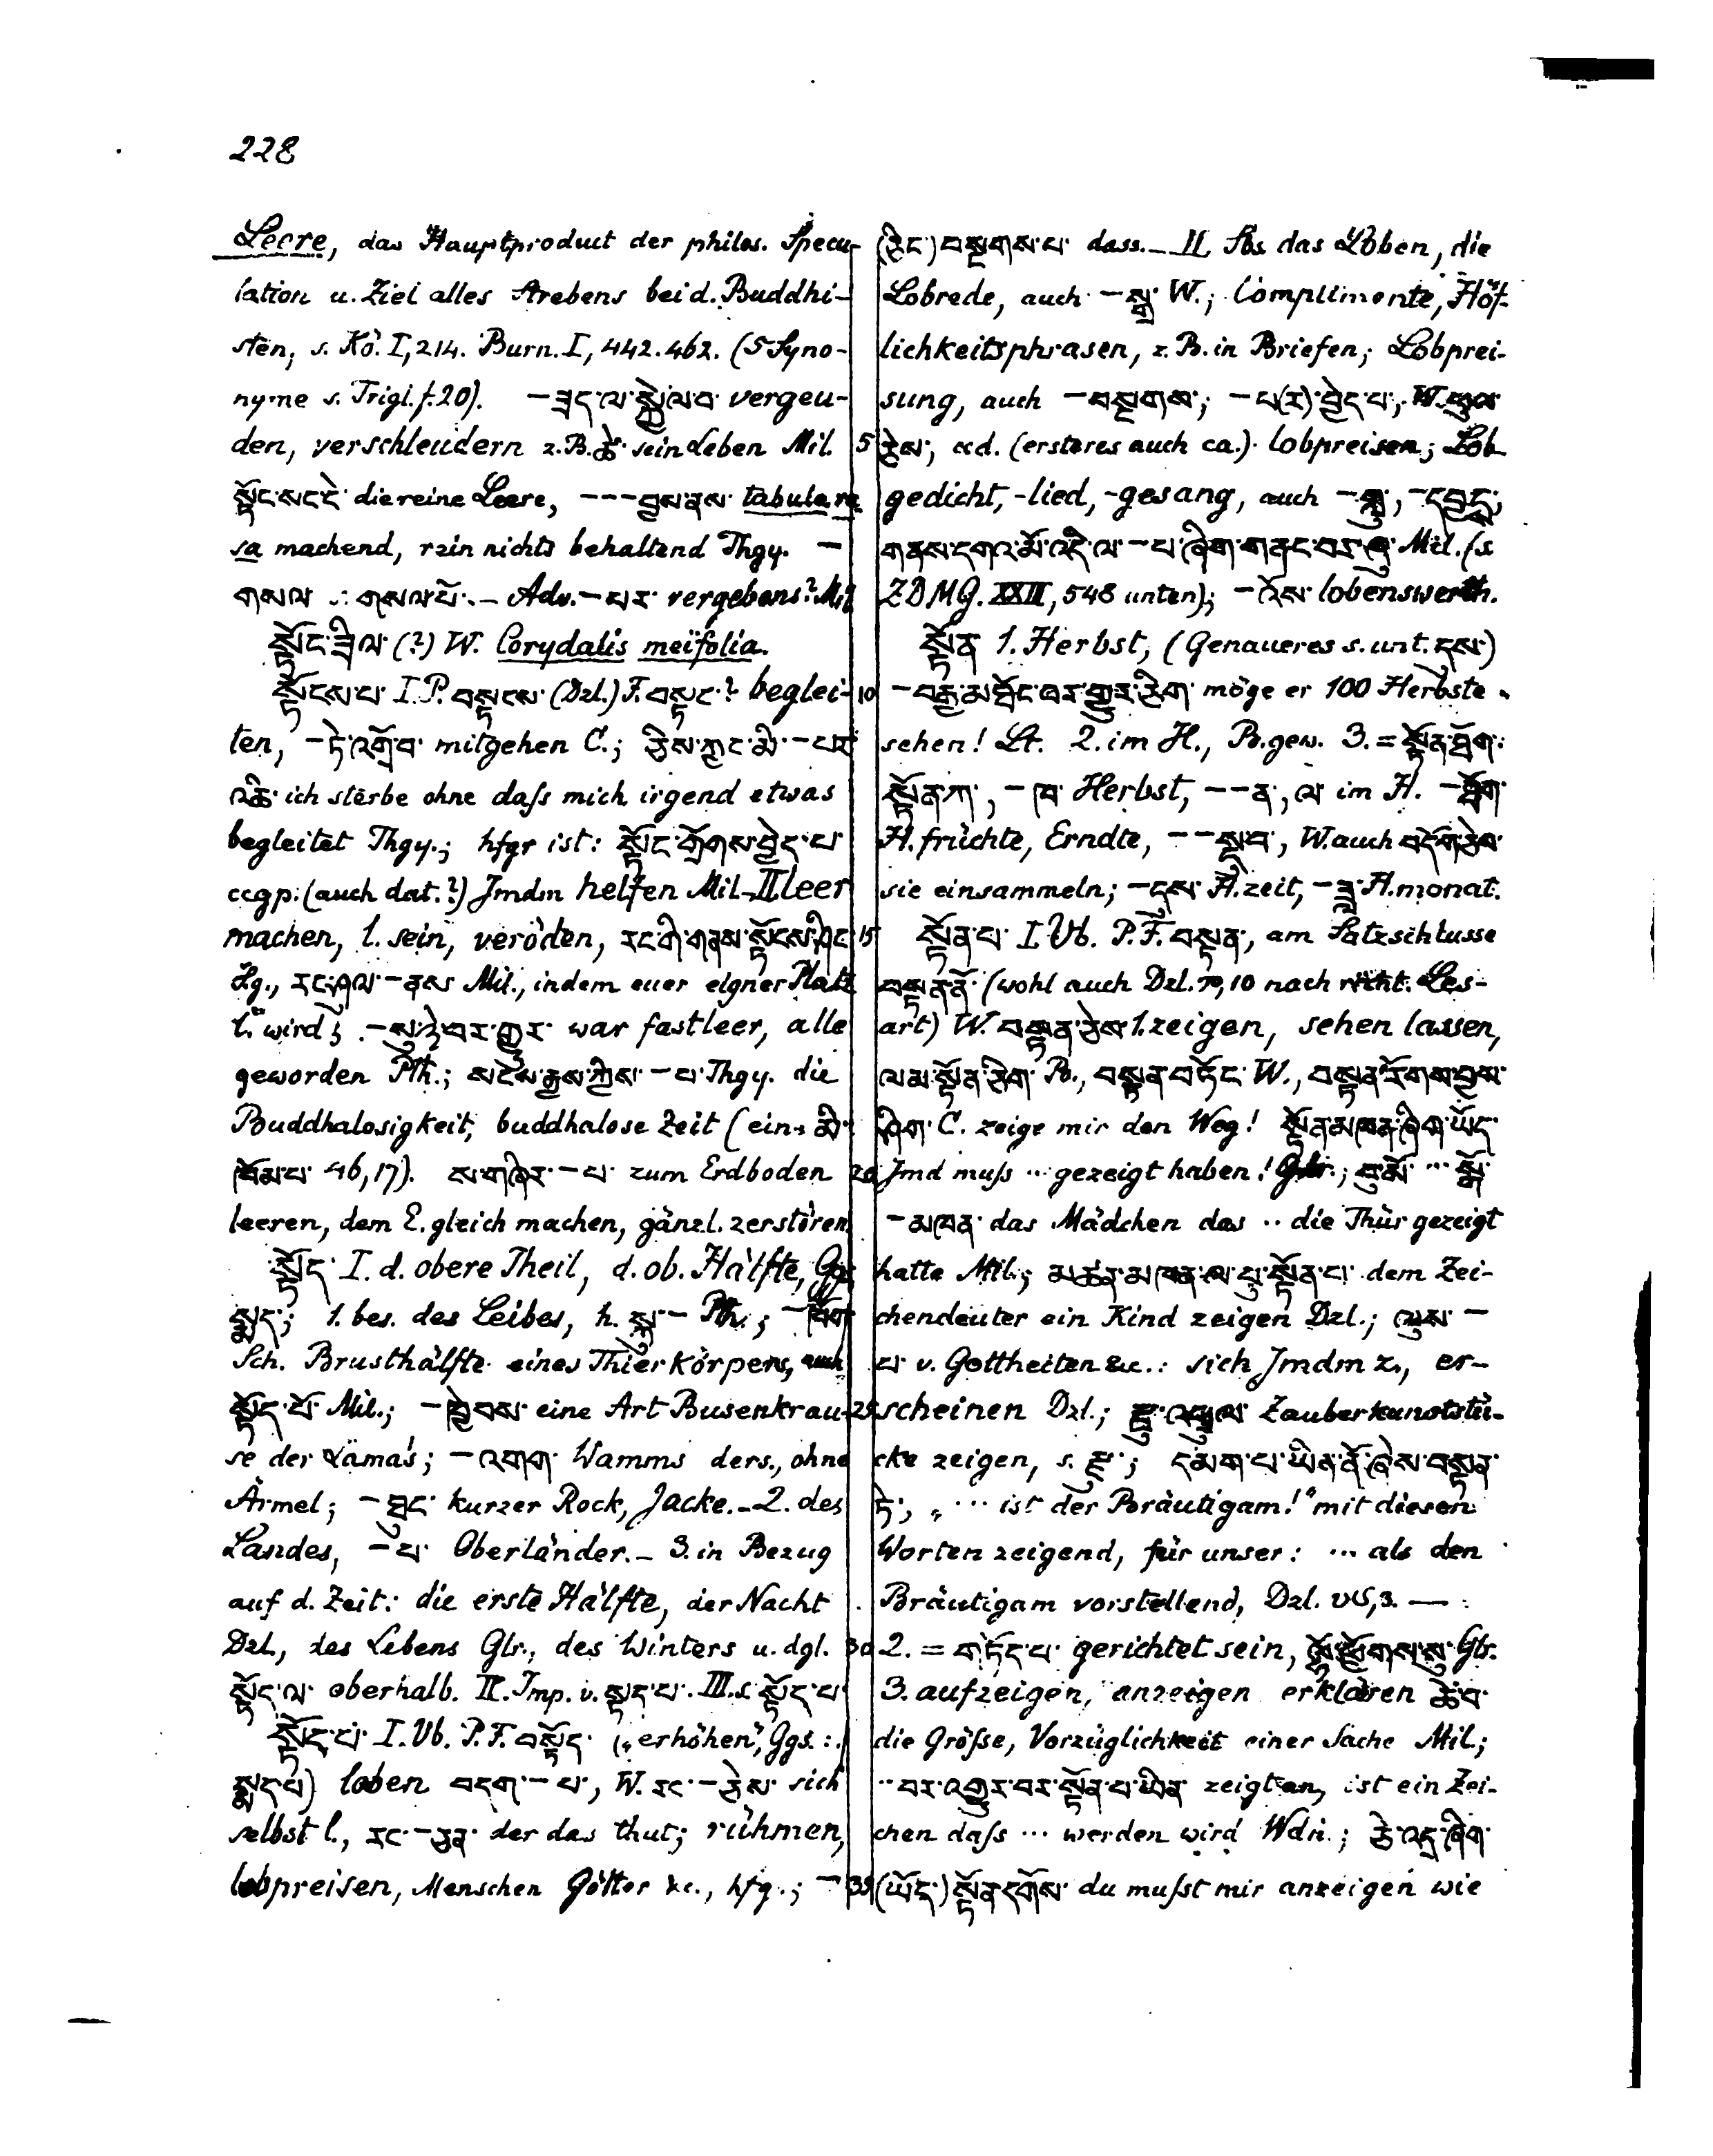 228
Leere, das Hauptproduct der philos. Specu-
lation u. Ziel alles Strebens bei d. Buddhi-
sten, s. Kö. I, 214. Burn. I, 442. 462. (5 Syno-
nyme s. Trigl. f. 20). – ཟད་ལ་སྐྱེལ་བ་ vergeu-
den, verschleudern z. B. ཚེ་ sein Leben Mil.
སྟོང་སང་ངེ་ die reine Leere, – – – བྱས་ནས་ tabula ra-
sa machend, rein nichts behaltend Thgy. –
གསལ ∴ གསལ་པོ་. – Adv. – པར་ vergebens? Mil
སྟོང་ཟིལ་ (?) W. Corydalis meifolia.
སྟོངས་པ་ I. P. བསྟངས་ (Dzl.) F. བསྟང་? beglei-
ten, – ཏེ་འགྲོ་བ་ mitgehen C.; ཅིས་ཀྱང་མི་ – པར་
འཆི་ ich sterbe ohne daſs mich irgend etwas
begleitet Thgy.; hfgr ist: སྟོང་གྲོགས་བྱེད་པ་
ccgp. (auch dat.?) Jmdm helfen Mil – II leer
machen, l. sein, veröden, རང་གི་གནས་སྟོངས་ཤིང་
Lg., རང་ཤུལ་ – ནས Mil., indem euer eigner Platz
l." wird; – སུ་ཉེ་བར་གྱུར་ war fast leer, alle
geworden Pth.; སངས་རྒྱས་ཀྱིས་ – པ་ Thgy. die
Buddhalosigkeit, buddhalose Zeit (eine མི་
ཁོམ་པ་ 46, 17). ས་གཞིར་ – པ་ zum Erdboden
leeren, dem E. gleich machen, gänzl. zerstören
སྟོད་ I. d. obere Theil, d. ob. Hälfte, Ggs
སྨད་; 1. bes. des Leibes, h. སྐུ་ – Pth.; – ཁོག་
Sch. Brusthälfte eines Thierkörpers, auch
སྟོད་པོ་ Mil.; – ཁེབས་ eine Art Busenkrau-
se der Lama's; – འགག་ Wamms ders., ohne
Ärmel; – ཐུང་ kurzer Rock, Jacke. – 2. des
Landes, – པ་ Oberländer. – 3. in Bezug
auf d. Zeit: die erste Hälfte, der Nacht
Dzl., des Lebens Glr., des Winters u. dgl.
སྟོད་ལ་ oberhalb. II. Imp. v. སྟད་པ་. III. s. སྟོད་པ་
སྟོད་པ་ I. Vb. P. F. བསྟོད་ („erhöhen", Ggs. :
སྨད་པ་) loben བདག་ – པ་, W. རང་ – ཅེས་ sich
selbst l., རང་ – ཅན་ der das thut; rühmen,
lobpreisen, Menschen Götter &c., hfg.; –
(ཅིང་) བསྔགས་པ་ dass. – II Sbs das Loben, die
Lobrede, auch – སྒྲ་ W.; Complimente, Höf-
lichkeitsphrasen, z. B. in Briefen; Lobprei-
sung, auch – བསྔགས་; – པ(ར)་བྱེད་པ་, W. ཕུལ་
5 ཅེས་, &d. (ersteres auch ca.) lobpreisen; Lob-
gedicht, -lied, -gesang, auch – གླུ་, – དབྱངས་,
གནས་དགའ་མོ་འདི་ལ་ – པ་ཞིག་གནང་བར་ཞུ་ Mil. (s
ZDMG. XXIII, 548 unten); – འོས་ lobenswerth.
སྟོན་ 1. Herbst, (Genaueres s. unt. དུས་)
10 – བརྒྱ་མཐོང་བར་གྱུར་ཅིག་ möge er 100 Herbste
sehen! Lt. 2. im H., B. gew. 3. = སྟོན་ཐོག་:
སྟོན་ཀ་, – ཁ་ Herbst, – – ན་, ལ་ im H. – ཐོག་
H. früchte, Erndte, – – སྡུ་བ་, W. auch
sie einsammeln; – དུས་ H. zeit, – ཟླ་ H. monat.
15 སྟོན་པ་ I Vb. P. F. བསྟན་, am Satzschlusse
བསྟན་ནོ་ (wohl auch Dzl. 70, 10 nach richt. Les-
art) W. བསྟན་ཅེས་ 1. zeigen, sehen lassen,
ལམ་སྟོན་ཅིག་ B., བསྟན་བཏོང་ W., བསྟན་རོགས་བྱས་
ཤིག་ C. zeige mir den Weg! སྟོན་མཁན་ཞིག་ཡོད་
20 Jmd muſs ··· gezeigt haben! Glr.; བུ་མོ་ ··· སྒོ་
– མཁན་ das Mädchen das ·· die Thür gezeigt
hatte Mil.; མཚན་མཁན་ལ་བུ་སྟོན་པ་ dem Zei-
chendeuter ein Kind zeigen Dzl.; ལུས་ –
པ་ v. Gottheiten &c.: sich Jmdm z., er-
25 scheinen Dzl.; རྫུ་འཕྲུལ་ Zauberkunststü-
cke zeigen, s. རྫུ་; དམག་པ་ཡིན་ནོ་ཞེས་བསྟན་
ཏེ་, „··· ist der Bräutigam!" mit diesen
Worten zeigend, für unser: ··· als den
Bräutigam vorstellend, Dzl. 3. —
30 2. = གཏོད་པ་ gerichtet sein, ལྷོ་ཕྱོགས་སུ་ Glr.
3. aufzeigen, anzeigen erklären ཆེ་བ་
die Gröſse, Vorzüglichkeit einer Sache Mil;
·· བར་འགྱུར་བར་སྟོན་པ་ཡིན zeigt an, ist ein Zei-
chen daſs ··· werden wird Wdn.; ཅི་འདྲ་ཞིག་
35 (ཡོད་) སྟོན་དགོས་ du muſst mir anzeigen wie